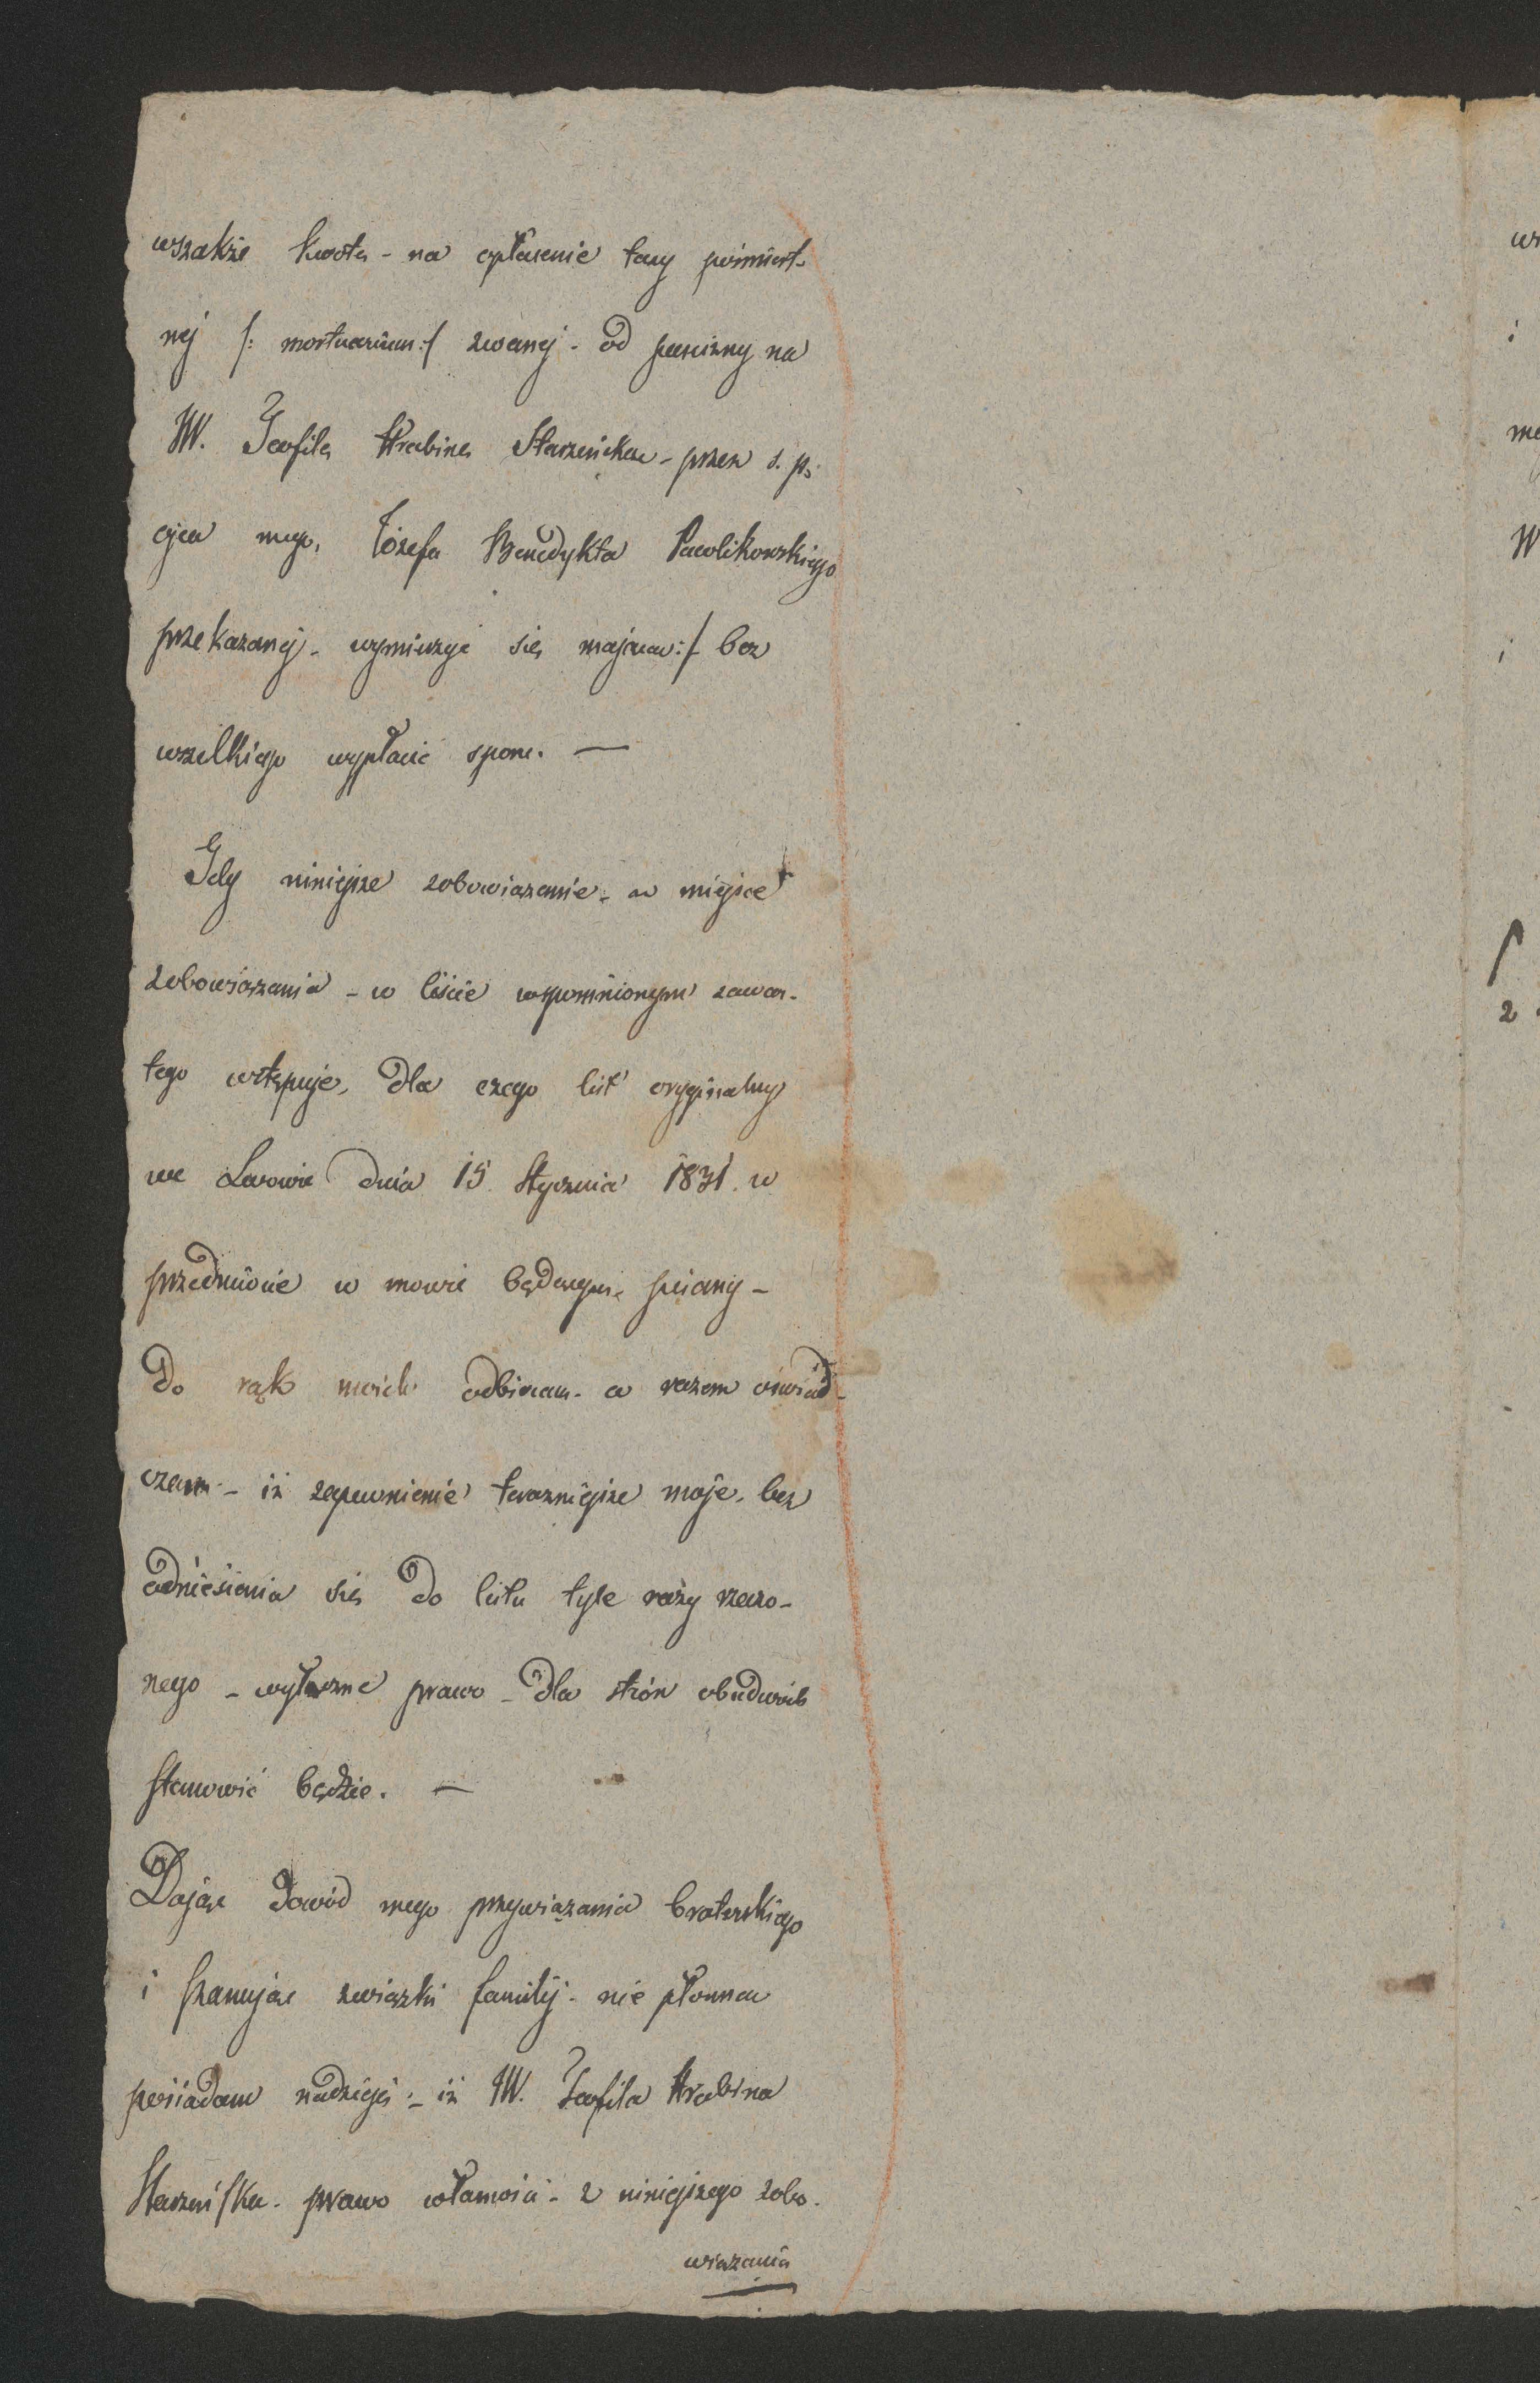 wszakże kwotę - na opłacenie taxy pośmiert-
nej /: mortuarium :/ zwanej - od puścizny na
JW. Teofilę Hrabinę Starzeńską - przez ś. p.
ojca mego, Józefa Benedykta Pawlikowskiego
przekazanej - wymierzyć się mającą :/ bez
wszelkiego wypłacić sporu. —
Gdy niniejsze zobowiązanie - w miejsce
zobowiązania - w liście wspomnionym zawar-
tego wstępuje, dla czego list oryginalny
we Lwowie dnia 15. Stycznia 1831. w
przedmiocie w mowie będącym, pisany -
do rąk moich odbieram - a razem oświad-
czam - iż zapewnienie teraźniejsze moje, bez
odniesienia się do listu tyle razy rzeczo-
nego - wyłączne prawo - dla strón obudwóch
stanowić będzie. —
Dając dowód mego przywiązania braterskiego
i szanując związki familij - nie płonną
posiadam nadzieję - iż JW. Teofila Hrabina
Starzeńska - prawo własności - z niniejszego zobo-
wiązania